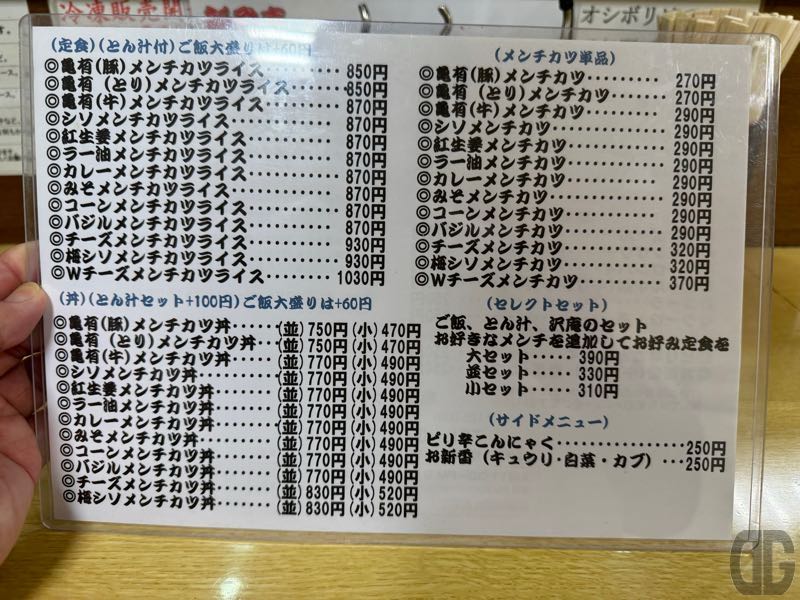 冷凍販売開
オシボリ
(定食)(とん汁付)ご飯大盛りは+60円
◎亀有(豚)メンチカツライス………850円
◎亀有(とり)メンチカツライス……850円
◎亀有(牛)メンチカツライス………870円
◎シソメンチカツライス…………870円
◎紅生姜メンチカツライス………870円
◎ラー油メンチカツライス………870円
◎カレーメンチカツライス………870円
◎みそメンチカツライス…………870円
◎コーンメンチカツライス………870円
◎バジルメンチカツライス………870円
◎チーズメンチカツライス………930円
◎梅シソメンチカツライス………930円
◎Wチーズメンチカツライス………1030円
(丼)(とん汁セット+100円)ご飯大盛りは+60円
◎亀有(豚)メンチカツ丼……(並)750円(小)470円
◎亀有(とり)メンチカツ丼…(並)750円(小)470円
◎亀有(牛)メンチカツ丼……(並)770円(小)490円
◎シソメンチカツ丼………(並)770円(小)490円
◎紅生姜メンチカツ丼……(並)770円(小)490円
◎ラー油メンチカツ丼……(並)770円(小)490円
◎カレーメンチカツ丼……(並)770円(小)490円
◎みそメンチカツ丼………(並)770円(小)490円
◎コーンメンチカツ丼……(並)770円(小)490円
◎バジルメンチカツ丼……(並)770円(小)490円
◎チーズメンチカツ丼……(並)830円(小)520円
◎梅シソメンチカツ丼……(並)830円(小)520円
(メンチカツ単品)
◎亀有(豚)メンチカツ………270円
◎亀有(とり)メンチカツ……270円
◎亀有(牛)メンチカツ………290円
◎シソメンチカツ…………290円
◎紅生姜メンチカツ………290円
◎ラー油メンチカツ………290円
◎カレーメンチカツ………290円
◎みそメンチカツ…………290円
◎コーンメンチカツ………290円
◎バジルメンチカツ………290円
◎チーズメンチカツ………320円
◎梅シソメンチカツ………320円
◎Wチーズメンチカツ………370円
(セレクトセット)
ご飯、とん汁、沢庵のセット
お好きなメンチを追加してお好み定食を
大セット……390円
並セット……330円
小セット……310円
(サイドメニュー)
ピリ辛こんにゃく………………250円
お新香(キュウリ・白菜・カブ)…250円
DG